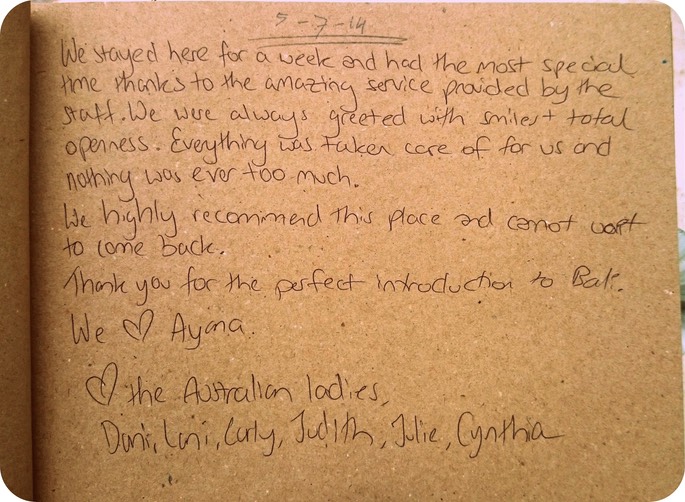 5-7-14
We stayed here for a week and had the most special
time thanks to the amazing service provided by the
staff. We were always greeted with smiles + total
openness. Everything was taken care of for us and
nothing was ever too much.
We highly recommend this place and cannot wait
to come back.
Thank you for the perfect introduction to Bali.
We ♡ Ayana.
♡ the Australian ladies,
Dani, Lani, Carly, Judith, Julie, Cynthia